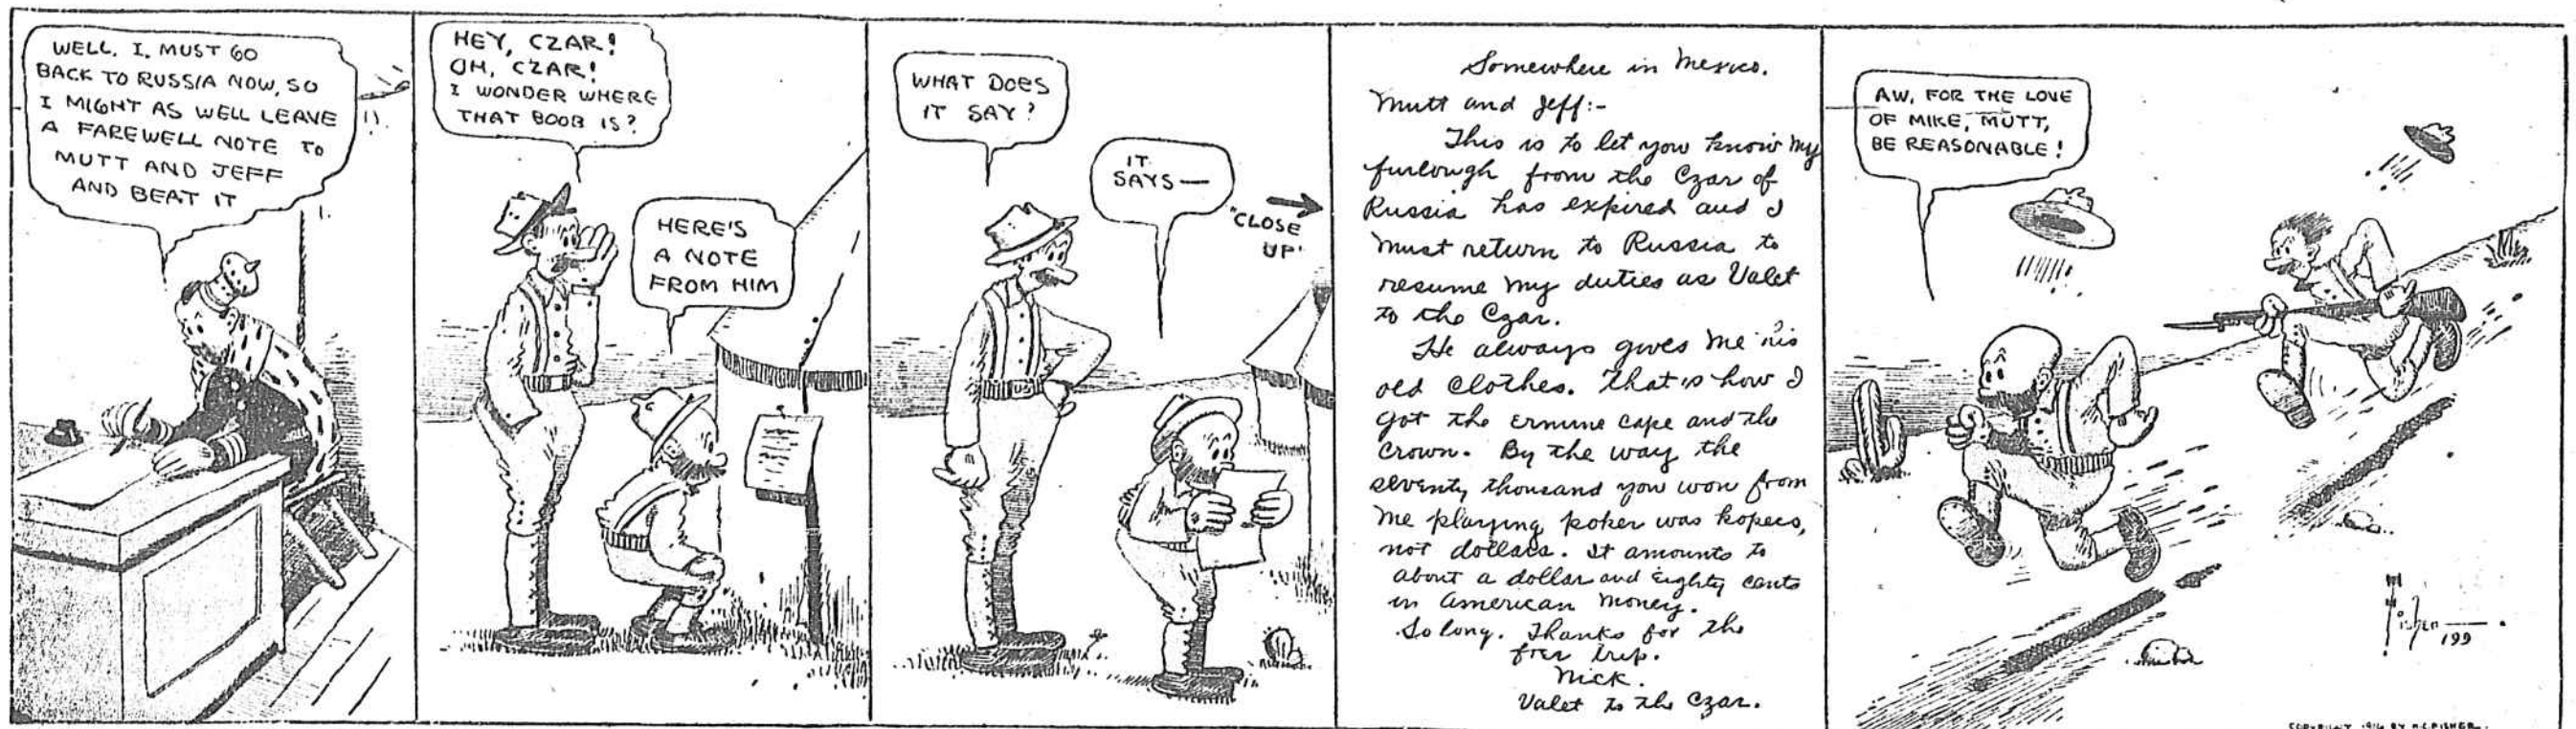 WELL, I MUST GO
BACK TO RUSSIA NOW, SO
I MIGHT AS WELL LEAVE
A FAREWELL NOTE TO
MUTT AND JEFF
AND BEAT IT
HEY, CZAR!
OH, CZAR!
I WONDER WHERE
THAT BOOB IS?
HERE'S
A NOTE
FROM HIM
WHAT DOES
IT SAY?
IT
SAYS—
"CLOSE
UP"
Somewhere in Mexico.
Mutt and Jeff:-
This is to let you know my
furlough from the Czar of
Russia has expired and I
must return to Russia to
resume my duties as Valet
to the Czar.
He always gives me his
old clothes. That's how I
got the ermine cape and the
crown. By the way the
seventy thousand you won from
me playing poker was kopecs,
not dollars. It amounts to
about a dollar and eighty cents
in American money.
So long. Thanks for the
free trip.
Nick.
Valet to the Czar.
AW, FOR THE LOVE
OF MIKE, MUTT,
BE REASONABLE!
199
COPYRIGHT 1916 BY H.C. FISHER.